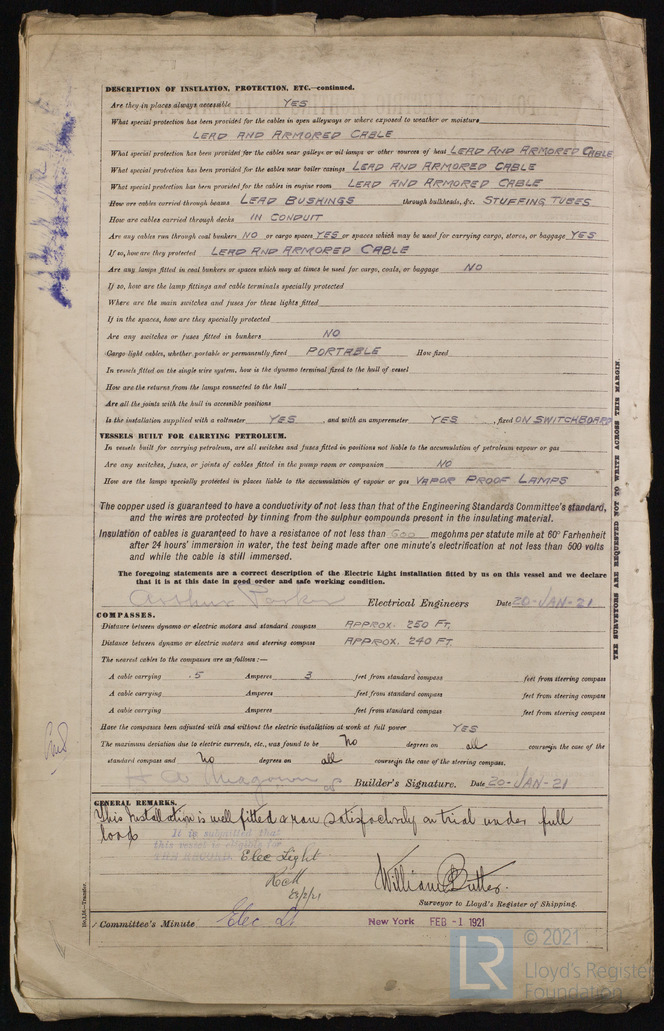 DESCRIPTION OF INSULATION, PROTECTION, ETC.—continued.
Are they in places always accessible YES
What special protection has been provided for the cables in open alleyways or where exposed to weather or moisture
LEAD AND ARMORED CABLE
What special protection has been provided for the cables near galleys or oil lamps or other sources of heat LEAD AND ARMORED CABLE
What special protection has been provided for the cables near boiler casings LEAD AND ARMORED CABLE
What special protection has been provided for the cables in engine room LEAD AND ARMORED CABLE
How are cables carried through beams LEAD BUSHINGS through bulkheads, &c. STUFFING TUBES
How are cables carried through decks IN CONDUIT
Are any cables run through coal bunkers NO or cargo spaces YES or spaces which may be used for carrying cargo, stores, or baggage YES
If so, how are they protected LEAD AND ARMORED CABLE
Are any lamps fitted in coal bunkers or spaces which may at times be used for cargo, coals, or baggage NO
If so, how are the lamp fittings and cable terminals specially protected
Where are the main switches and fuses for these lights fitted
If in the spaces, how are they specially protected
Are any switches or fuses fitted in bunkers NO
Cargo light cables, whether portable or permanently fixed PORTABLE How fixed
In vessels fitted on the single wire system, how is the dynamo terminal fixed to the hull of vessel
How are the returns from the lamps connected to the hull
Are all the joints with the hull in accessible positions
Is the installation supplied with a voltmeter YES , and with an amperemeter YES , fixed ON SWITCHBOARD
VESSELS BUILT FOR CARRYING PETROLEUM.
In vessels built for carrying petroleum, are all switches and fuses fitted in positions not liable to the accumulation of petroleum vapour or gas
Are any switches, fuses, or joints of cables fitted in the pump room or companion NO
How are the lamps specially protected in places liable to the accumulation of vapour or gas VAPOR PROOF LAMPS
The copper used is guaranteed to have a conductivity of not less than that of the Engineering Standards Committee's standard,
and the wires are protected by tinning from the sulphur compounds present in the insulating material.
Insulation of cables is guaranteed to have a resistance of not less than 600 megohms per statute mile at 60° Farhenheit
after 24 hours' immersion in water, the test being made after one minute's electrification at not less than 500 volts
and while the cable is still immersed.
The foregoing statements are a correct description of the Electric Light installation fitted by us on this vessel and we declare
that it is at this date in good order and safe working condition.
Arthur Parker Electrical Engineers Date 20-JAN-21
COMPASSES.
Distance between dynamo or electric motors and standard compass APPROX. 250 FT.
Distance between dynamo or electric motors and steering compass APPROX. 240 FT.
The nearest cables to the compasses are as follows:—
A cable carrying .5 Amperes 3 feet from standard compass feet from steering compass
A cable carrying Amperes feet from standard compass feet from steering compass
A cable carrying Amperes feet from standard compass feet from steering compass
Have the compasses been adjusted with and without the electric installation at work at full power YES
The maximum deviation due to electric currents, etc., was found to be No degrees on all course in the case of the
standard compass and No degrees on all course in the case of the steering compass.
Builder's Signature. Date 20-JAN-21
GENERAL REMARKS.
This Installation is well fitted & ran satisfactorily on trial under full
load
It is submitted that
this vessel is eligible for
THE RECORD. Elec Light
William Butler.
Surveyor to Lloyd's Register of Shipping.
Committee's Minute Elec Lt New York FEB -1 1921
THE SURVEYORS ARE REQUESTED NOT TO WRITE ACROSS THIS MARGIN.
LR © 2021
Lloyd's Register
Foundation